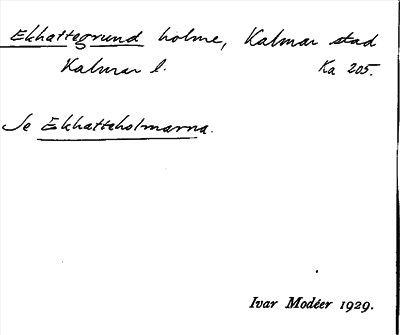 Ekhattegrund holme, Kalmar stad
Kalmar l. Ka 205.
Se Ekhatteholmarna.
Ivar Modéer 1929.